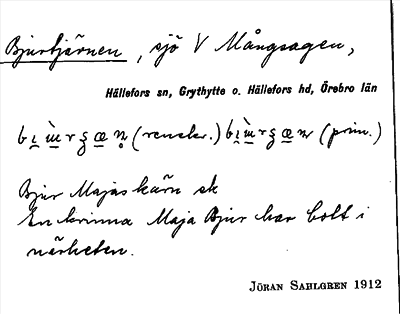 Bjurtjärnen, sjö V Mångsagen,
Hällefors sn, Grythytte o. Hällefors hd, Örebro län
(prim.)
Bjur Majas kärn sk
En kvinna Maja Bjur har bott i
närheten.
JÖRAN SAHLGREN 1912